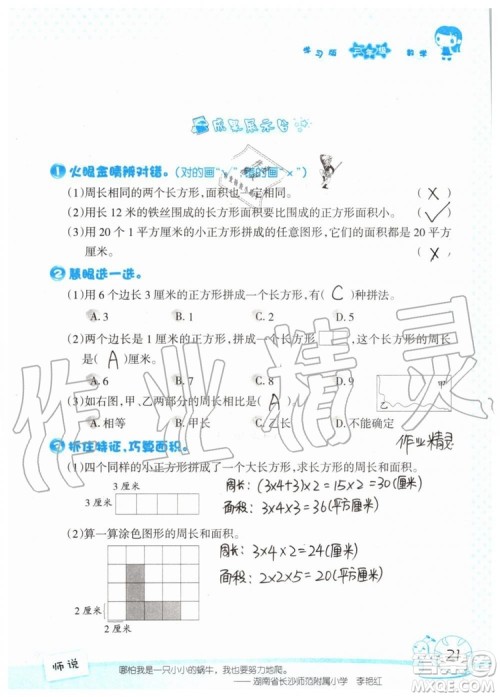 学习版 三年级 数学
成果展示台
1 火眼金睛辨对错。(对的画“√”,错的画“×”)
(1)周长相同的两个长方形,面积也一定相同。 (X)
(2)用长 12 米的铁丝围成的长方形面积要比围成的正方形面积小。 (✓)
(3)用 20 个 1 平方厘米的小正方形拼成的任意图形,它的面积都是 20 平方厘米。 (X)
2 慧眼选一选。
(1)用 6 个边长 3 厘米的正方形拼成一个长方形,有( C )种拼法。
A. 3 B. 1 C. 2 D. 4
(2)把两个边长是 1 厘米的正方形拼成一个长方形,这个长方形的周长
是( A )厘米。
A. 6 B. 7 C. 8 D. 9
(3)如右图,甲、乙两部分的周长
A. 相等 B. 甲长 C. 乙长 D. 不能确定
作业精灵
抓住特征,巧算面积。
(1)四个同样的小正方形拼成了一个大长方形,求长方形的周长和面积。
3 厘米
3 厘米
周长:(3×4+3)×2=15×2=30(厘米)
面积:3×4×3=36(平方厘米)
(2)算一算涂色图形的周长和面积。
周长:3×4×2=24(厘米)
面积:2×2×5=20(平方厘米)
2 厘米
2 厘米
师说
21
哪怕我是一只小小的蜗牛,我也要努力地爬。
——湖南省长沙师范附属小学 李艳红
作业精灵